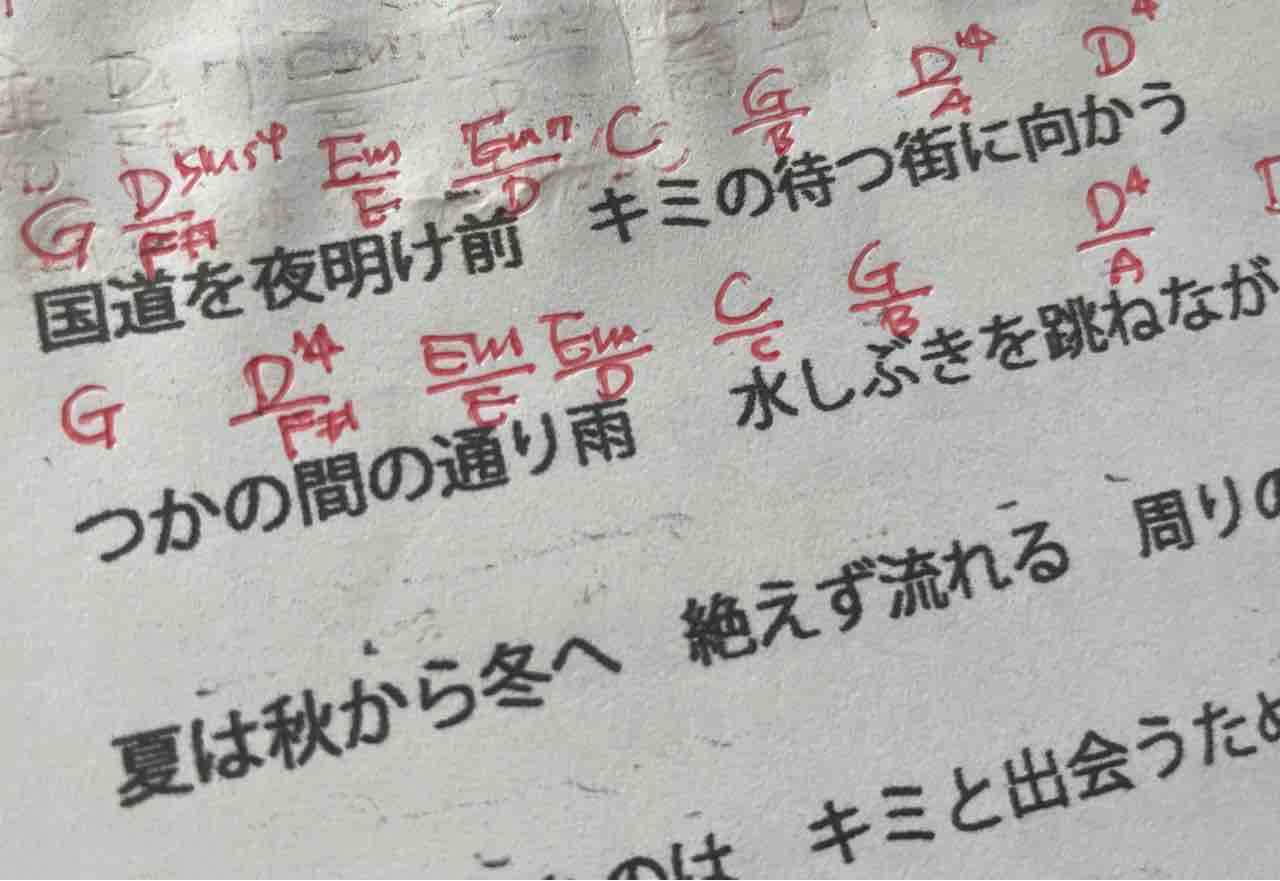 G D sus4/F# Em/E Em7/D C G/B D4/A D4
国道を夜明け前 キミの待つ街に向かう
G D4/F# Em/E Em/D C/C G/B D4/A
つかの間の通り雨 水しぶきを跳ねなが
夏は秋から冬へ 絶えず流れる 周りの
のは キミと出会うため